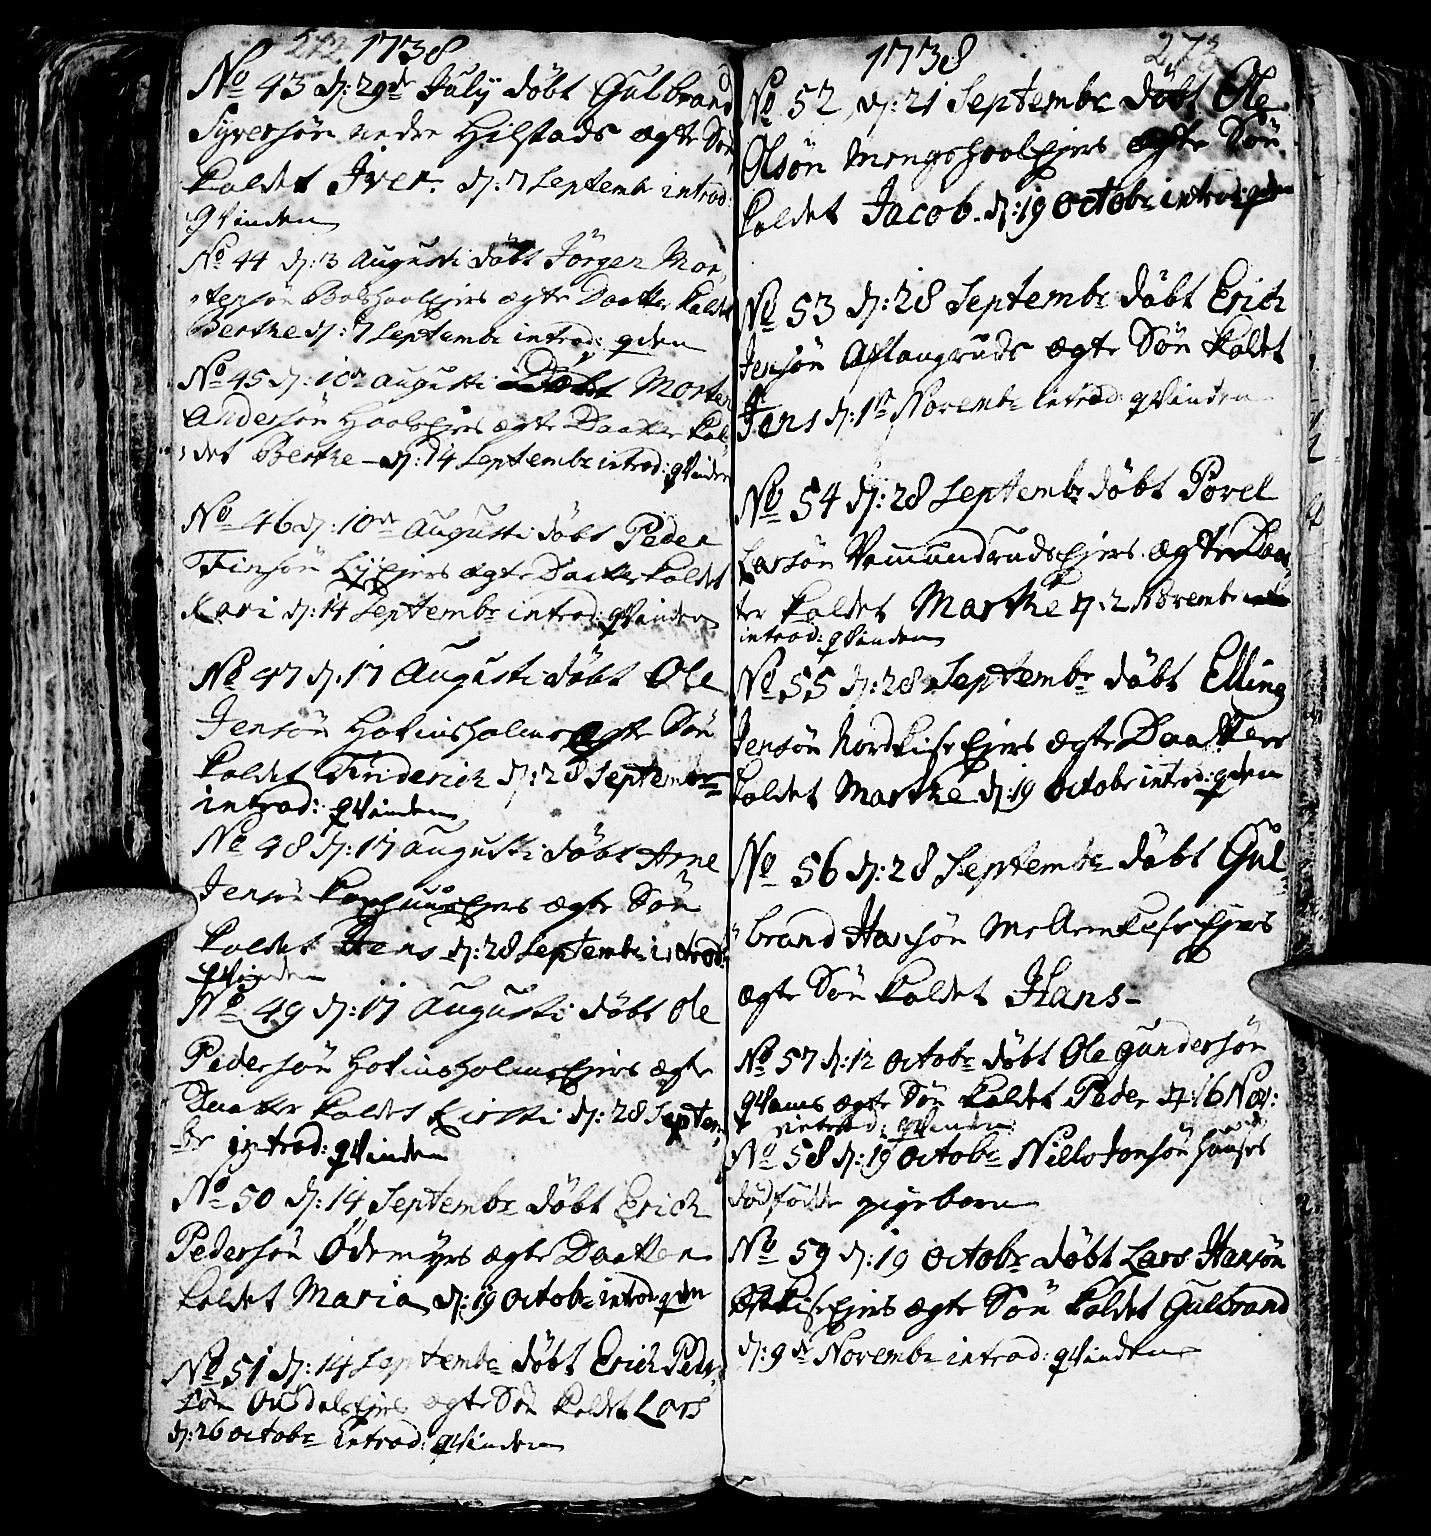 272 1738
No 43 d: 29de Julij döbt Gulbrand
Syversön nedre Hilstads ægte Sön
kaldet Iver. d: 7 Septembr introd:
qvinden
No 44 d: 3 Augusti döbt Jörgen Mor,
,tensön ægte Daatter kaldet
Berthe d: 7 Septembr introd: qden
No 45 d: 10de augusti Döbt Morten
Andersön ægte Daatter kal,
,det Berthe d: 14 Septembr introd: qvinden
No 46 d: 10de Augusti döbt Peder
Finsön ægte Daatter kaldet
Kari d: 14 Septembr introd: qvinden
No 47 d: 17 Augusti döbt Ole
Jensön Hovinsholms ægte Sön
kaldet Friderich d: 28 Septembr
introd: qvinden
No 48 d: 17 augusti döbt Arne
Jensön ægte Sön
kaldet Hens d: 28 Septembr introd:
qvinden
No 49 d: 17 Augusti döbt Ole
Pedersön Hovinsholms Ejers ægte
Daatter kaldet Kirsti d: 28 Septem,
br introd: qvinden
No 50 d: 14 Septembr döbt Erich
Pedersön Ödemyrs ægte Daatter
kaldet Maria d: 19 Octobr introd: qden
No 51 d: 14 Septembr döbt Erich Peder,
sön ægte Sön kaldet Lars
d: 26 octobr introd: qvinden
1738 273
No 52 d: 21 Septembr döbt Ole
Olsön Mengshoel Ejers ægte Sön
kaldet Jacob. d: 19 Octobr introd: qden
No 53 d: 28 Septembr döbt Erich
Jensön Aslangruds ægte Sön kaldet
Jens d: 1te Novembr introd: qvinden
No 54 d: 28 Septembr döbt Povel
Larsön Vemundruds Ejers ægte Daat,
ter kaldet Marthe d: 2 Novembr
introd: qvinden
No 55 d: 28 Septembr döbt Elling
Jensön Nordkise Ejers ægte Daatter
kaldet Marthe d: 19 Octobr introd: qden
No 56 d: 28 Septembr döbt Gul,
,brand Hansön Mellemkise Ejers
ægte Sön kaldet Hans
No 57 d: 12 Octobr döbt Ole Gundersön
qvams ægte Sön kaldet Peder d: 16 Nov:
introd: qvinden
No 58 d: 19 Octobr Niels Jonsön
dödfödte pigebarn
No 59 d: 19 Octobr döbt Lars Hansön
Ejers ægte Sön kaldet Gulbrand
d: 9de Novembr introd: qvinden